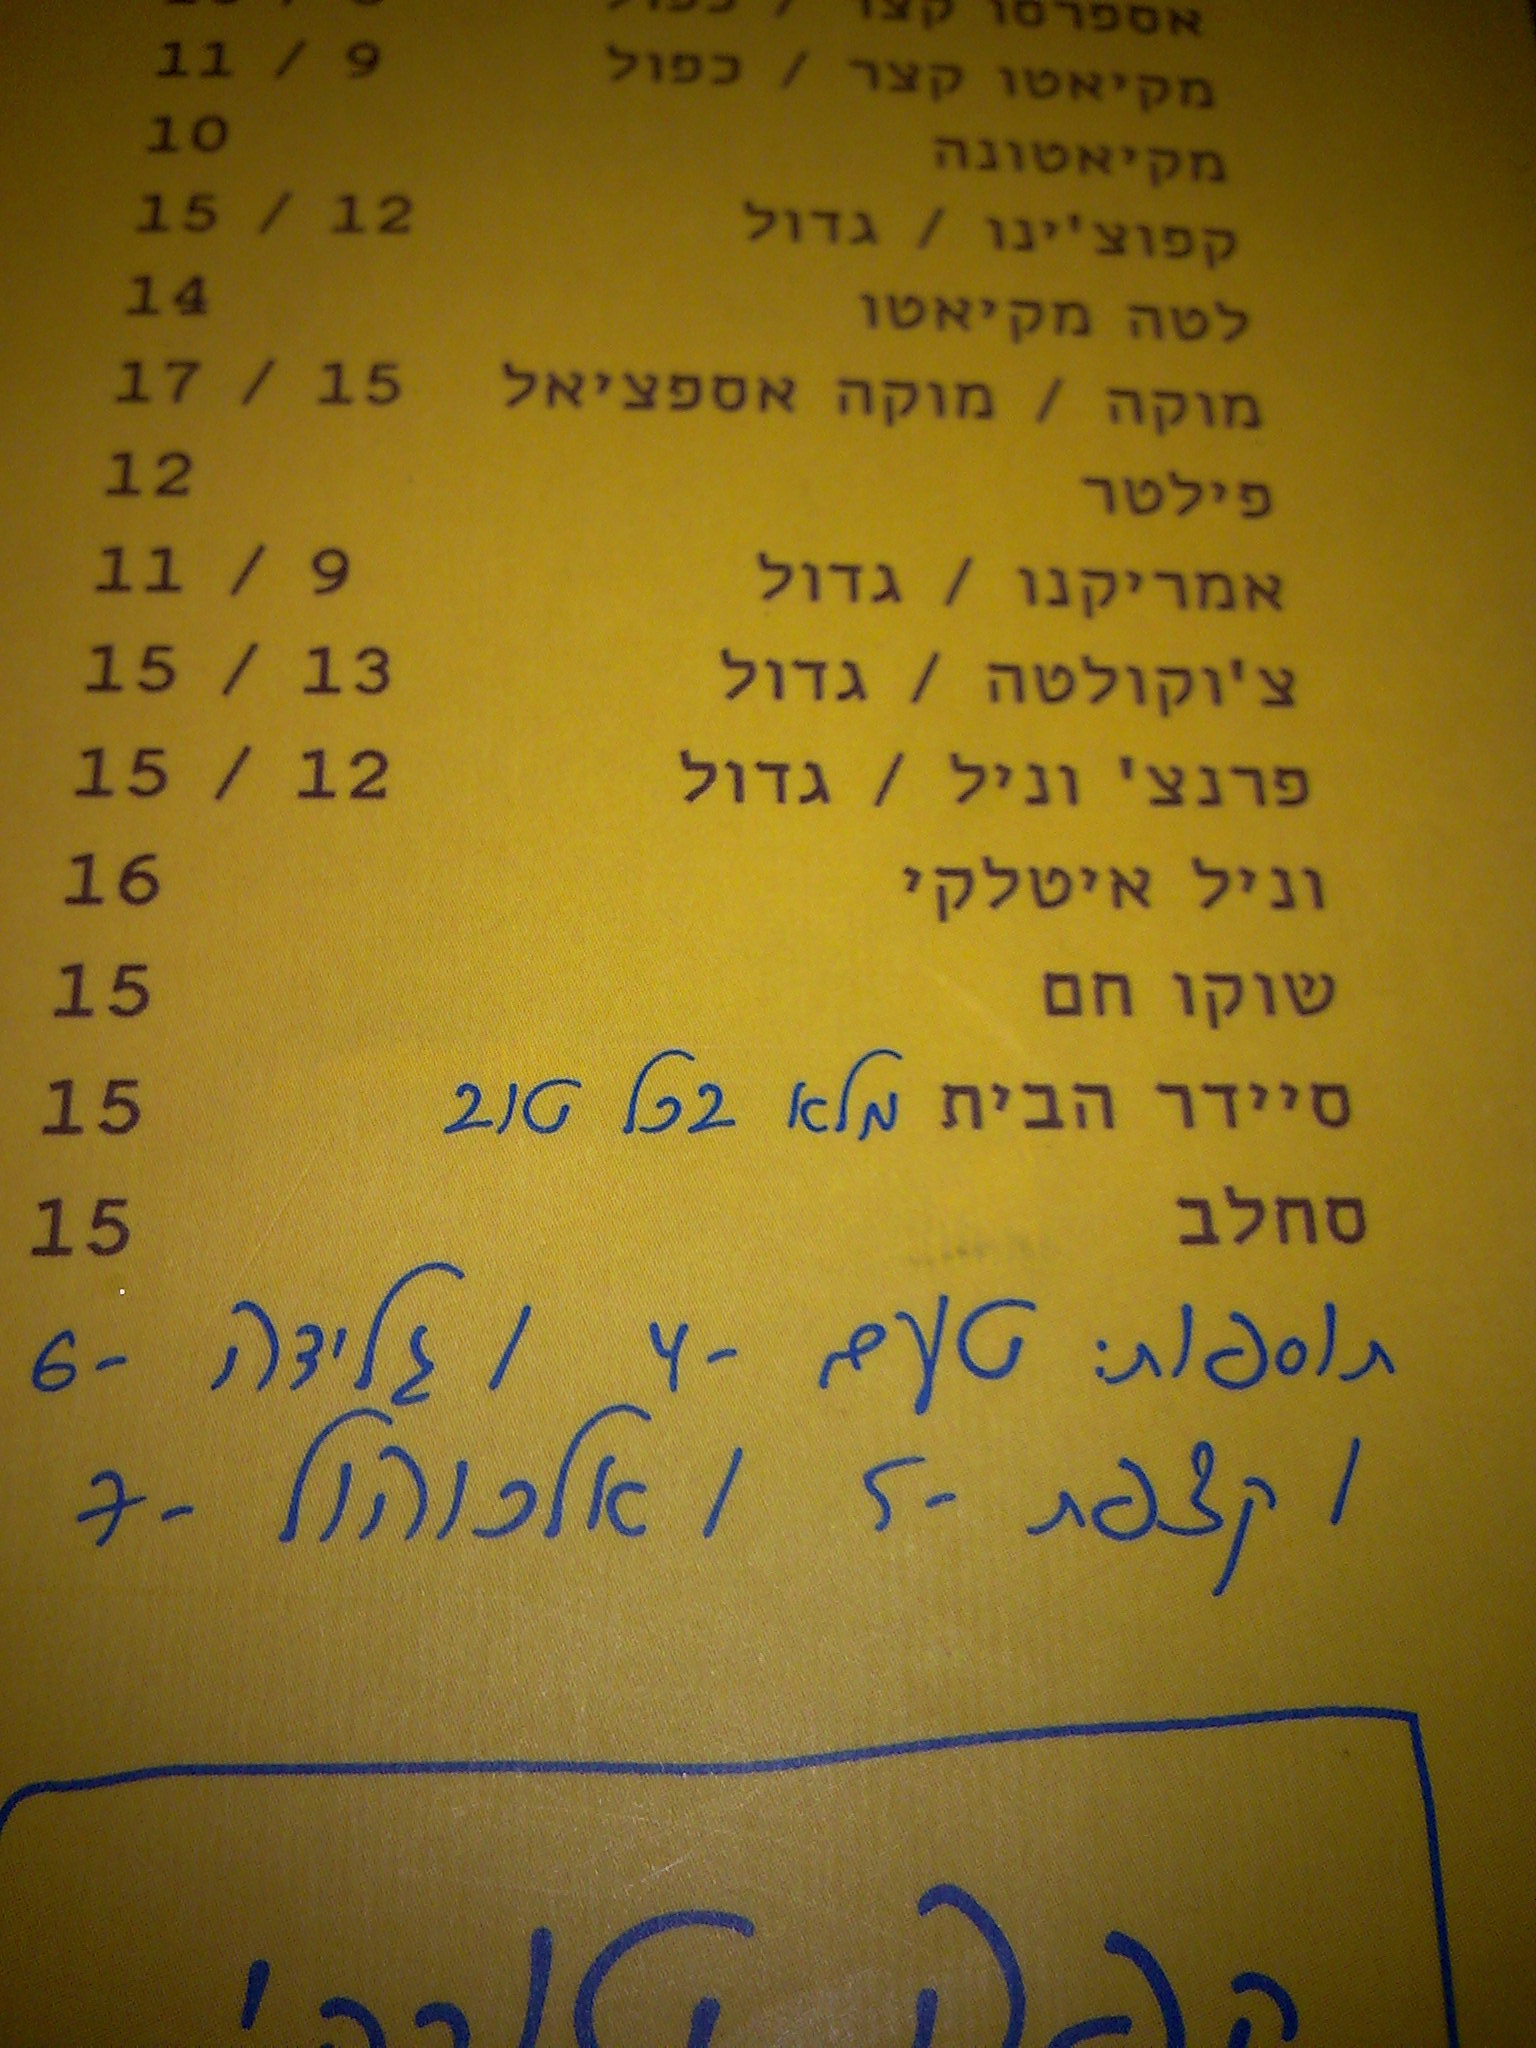 אספרסו קצר / כפול
מקיאטו קצר / כפול 9 / 11
מקיאטונה 10
קפוצ'ינו / גדול 12 / 15
לטה מקיאטו 14
מוקה / מוקה אספציאל 15 / 17
פילטר 12
אמריקנו / גדול 9 / 11
צ'וקולטה / גדול 13 / 15
פרנצ' וניל / גדול 12 / 15
וניל איטלקי 16
שוקו חם 15
סיידר הבית מלא בכל טוב 15
סחלב 15
תוספות: טעם -4 / גלידה -6
/ קצפת -5 / אלכוהול -7